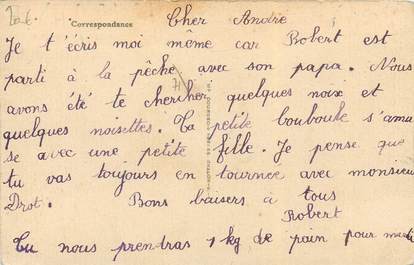 Correspondance
Cher André
Je t'écris moi même car Robert est
parti à la pêche avec son papa. Nous
avons été te chercher quelques noix et
quelques noisettes. Ta petite bouboule s'amu
se avec une petite fille. Je pense que
tu vas toujours en tournée avec monsieur
Drot. Bons baisers à tous
Robert
Tu nous prendras 1 kg de pain pour